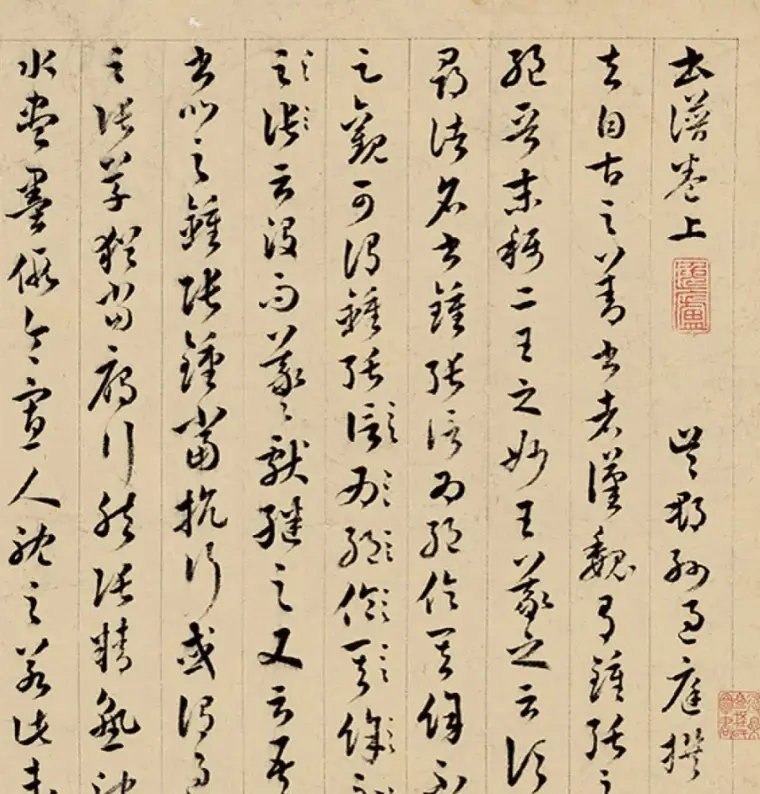 書譜卷上 吳郡孫過庭撰
夫自古之善書者漢魏有鍾張之
絕晉末稱二王之妙王羲之云頃
尋諸名書鍾張信為絕倫其餘不
足觀可謂鍾張信為絕倫其餘不
足觀云沒而羲獻繼之又云吾
書比之鍾張鍾當抗行或謂過
之張草猶當雁行然張精熟池
水盡墨假令寡人耽之若此未